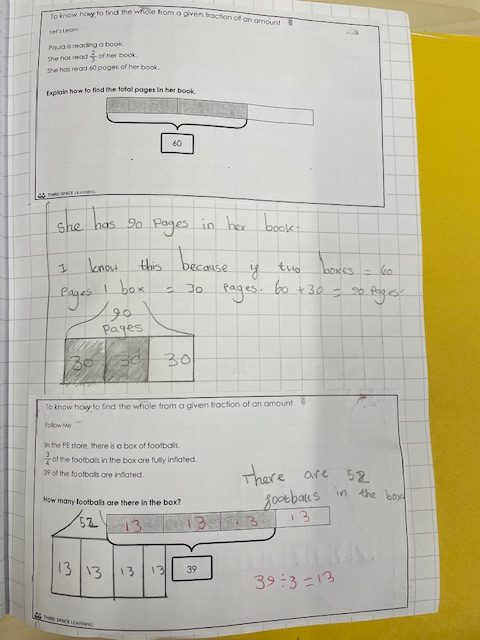 To know how to find the whole from a given fraction of an amount
Let's Learn
Paula is reading a book.
She has read 2/3 of her book.
She has read 60 pages of her book.
Explain how to find the total pages in her book.
60
THIRD SPACE LEARNING
She has 90 pages in her book.
I know this because if two boxes = 60
Pages 1 box = 30 pages. 60 + 30 = 90 Pages.
90
Pages
30 30 30
To know how to find the whole from a given fraction of an amount
Follow Me
In the PE store, there is a box of footballs.
3/4 of the footballs in the box are fully inflated.
39 of the footballs are inflated.
There are 52
footballs in the box
How many footballs are there in the box?
52
13 13 13 13
13 13 13 13
39
39 ÷ 3 = 13
THIRD SPACE LEARNING